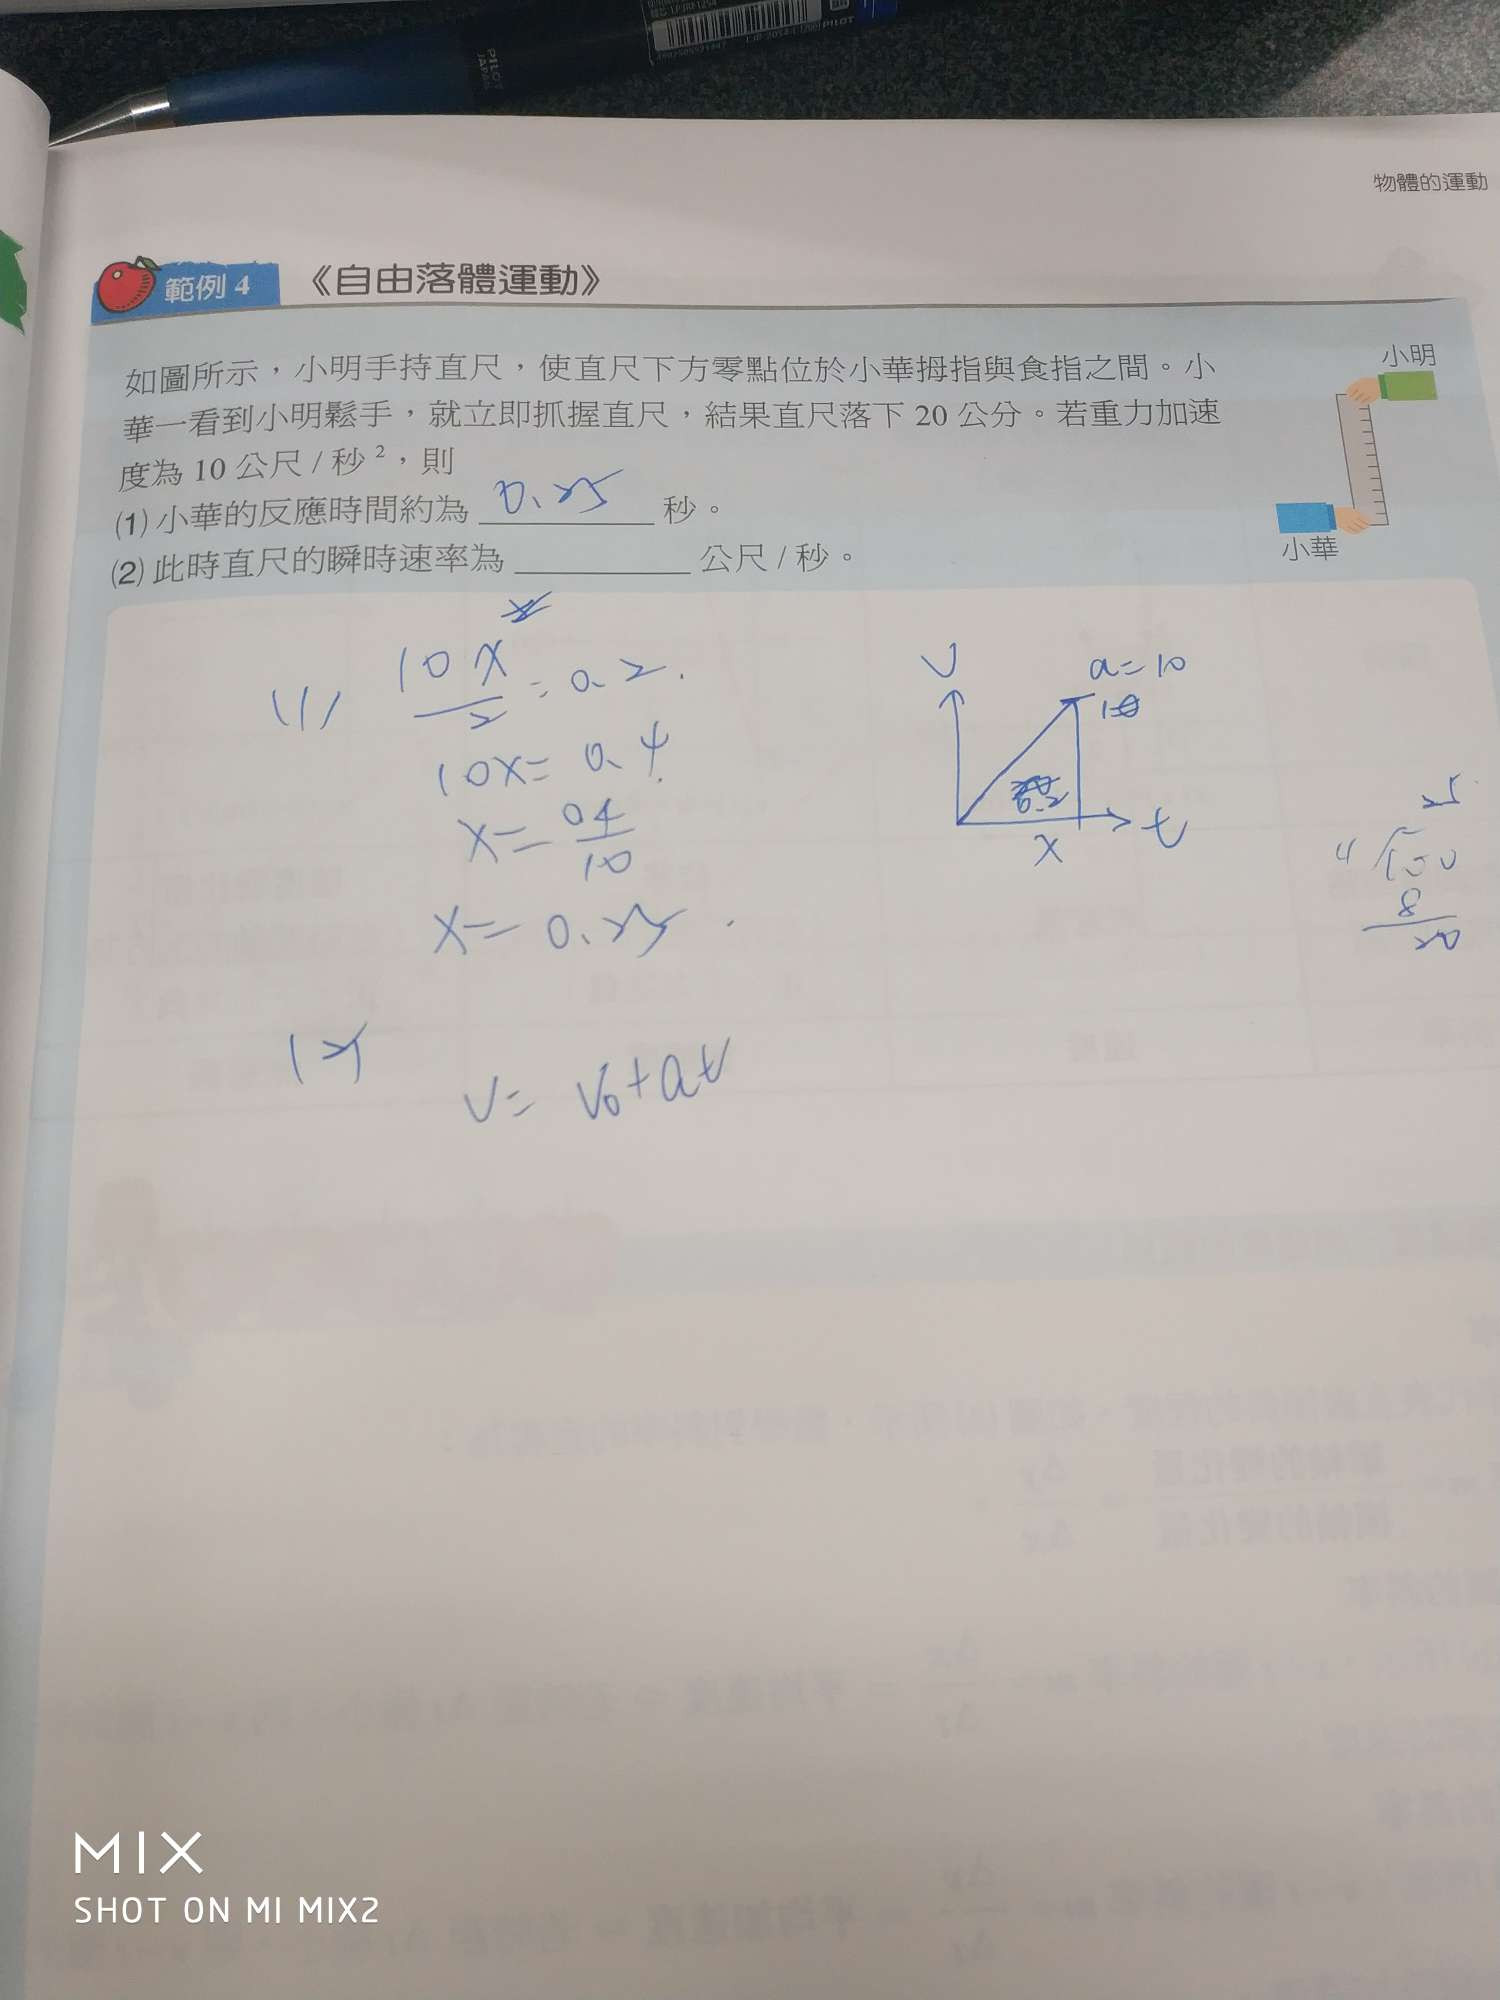 PILOT
JAPAN
PILOT
物體的運動
範例 4 《自由落體運動》
如圖所示，小明手持直尺，使直尺下方零點位於小華拇指與食指之間。小
華一看到小明鬆手，就立即抓握直尺，結果直尺落下 20 公分。若重力加速
度為 10 公尺 / 秒²，則
(1) 小華的反應時間約為 0.25 秒。
(2) 此時直尺的瞬時速率為 ________ 公尺 / 秒。
小明
小華
(1) 10x/2 = 0.2
10x = 0.4
x = 0.4/10
x = 0.25
V
a=10
10
0.2
x
t
25
4 100
8
20
(2)
V = V₀ + at
MIX
SHOT ON MI MIX2